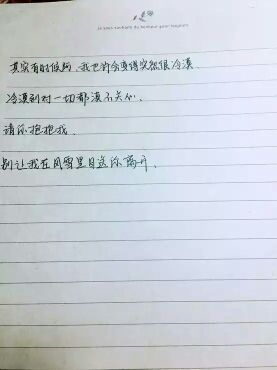 Je vous souhaite du bonheur pour toujours
其实有时候吧，我也许会变得突然很冷漠.
冷漠到对一切都漠不关心.
请你抱抱我.
别让我在风雪里目送你离开.